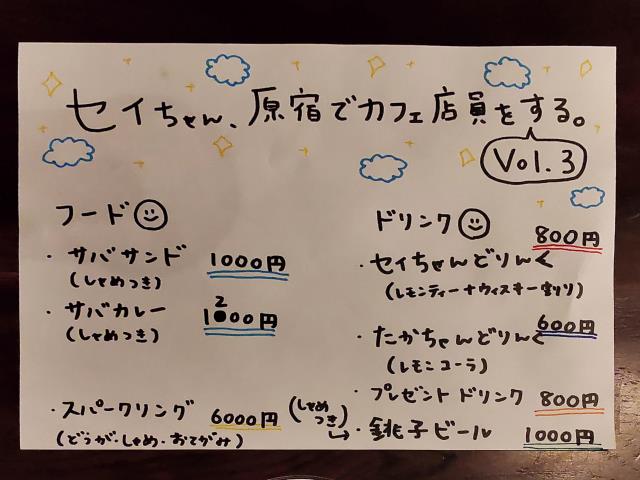 セイちゃん、原宿でカフェ店員をする。
Vol.3
フード
・サバサンド 1000円
(しゃめつき)
・サバカレー 1200円
(しゃめつき)
・スパークリング 6000円
(どうが・しゃめ・おてがみ)
ドリンク
800円
・セイちゃんどりんく
(レモンティー+ウィスキー割り)
600円
・たかちゃんどりんく
(レモンコーラ)
・プレゼントドリンク 800円
(しゃめつき)
・銚子ビール 1000円